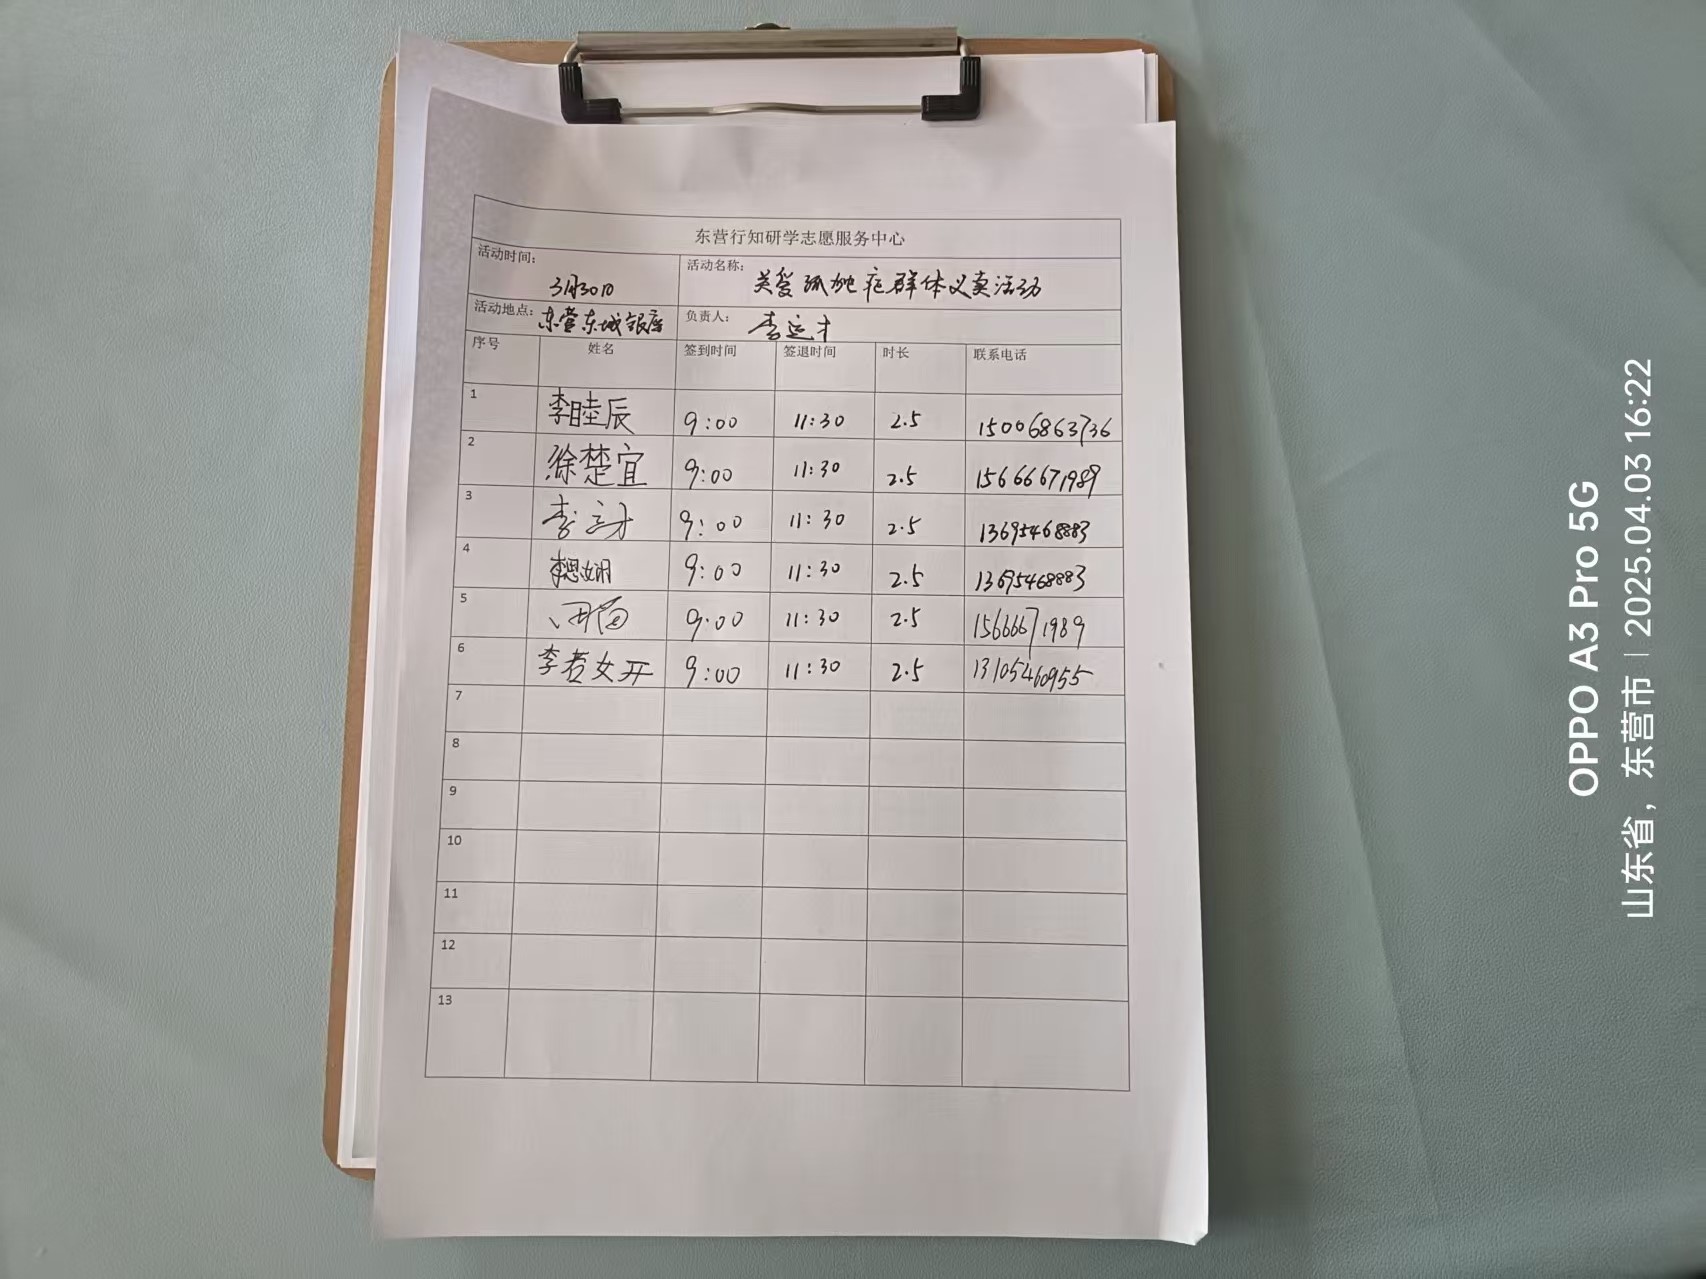 东营行知研学志愿服务中心
活动时间： 3月30日 活动名称： 关爱孤独症群体义卖活动
活动地点： 东营东城银座 负责人： 李运才
序号 姓名 签到时间 签退时间 时长 联系电话
1 李睦辰 9:00 11:30 2.5 15006863736
2 徐楚宜 9:00 11:30 2.5 15666671989
3 李运才 9:00 11:30 2.5 13695468883
4 李思娴 9:00 11:30 2.5 13695468883
5 9:00 11:30 2.5 15666671989
6 李若妍 9:00 11:30 2.5 13105460955
7
8
9
10
11
12
13
OPPO A3 Pro 5G
山东省，东营市 | 2025.04.03 16:22